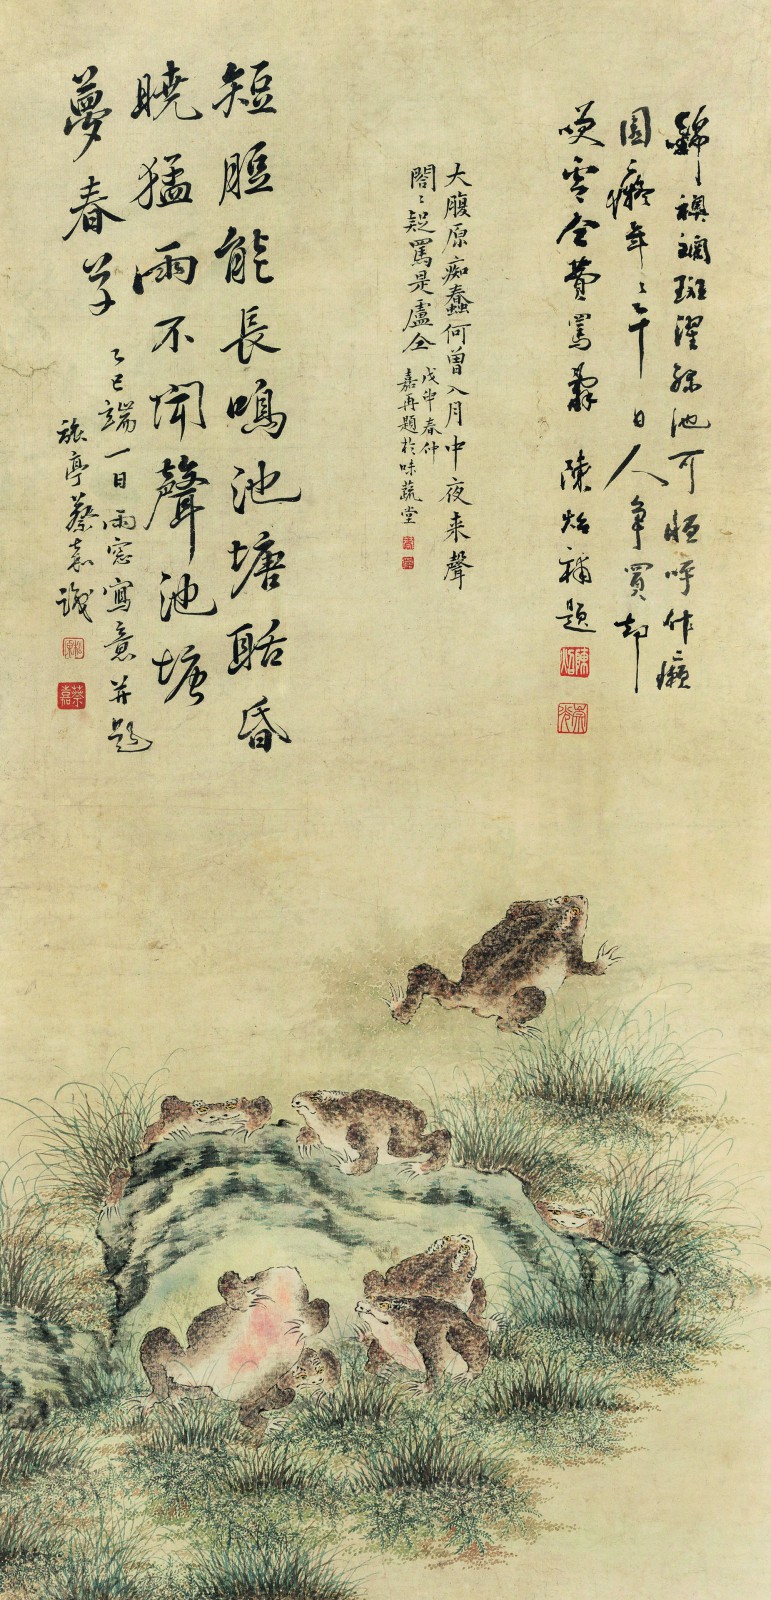 錦襖斕斑濯綠池可呼作癩
團癡年〻午日人爭買却
咲盧仝費罵辭 陳炤補題
陳炤
大腹原痴蠢何曾入月中夜来聲
閣〻疑罵是盧仝 戊申春仲
嘉再題於味蔬堂
短脰能長鳴池塘聒昏
曉猛雨不聞聲池塘
夢春草
乙巳端一日雨窓寫意并題
旅亭蔡嘉識
蔡嘉